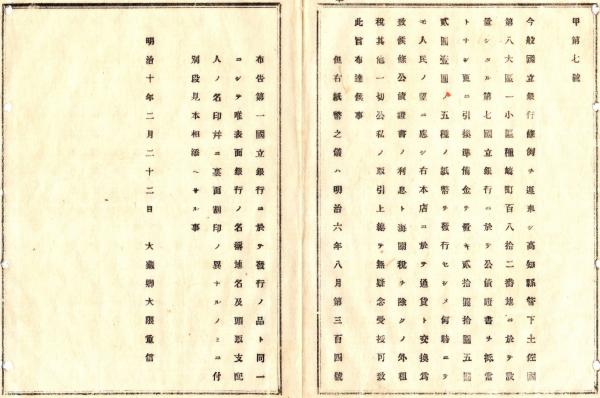 甲第七號
今般國立銀行條例ヲ遵奉シ高知縣管下土佐國
第八大區一小區種崎町百八拾二番地ニ於テ設
置シタル第七國立銀行ニ於テ公債證書ヲ抵當
トナシ更ニ引換準備金ヲ置キ貳拾圓拾圓五圓
貳圓壹圓ノ五種ノ紙幣ヲ發行セシメ何時ニテ
モ人民ノ望ニ應シ右本店ニ於テ通貨ト交換爲
致候條公債證書ノ利息ト海關稅ヲ除クノ外租
稅其他一切公私ノ取引上總テ無疑念受授可致
此旨布達候事
但右紙幣之儀ハ明治六年八月第三百四號
布告第一國立銀行ニ於テ發行ノ品ト同一
ニシテ唯表面銀行ノ名稱地名及頭取支配
人ノ名印幷ニ裏面割印ノ異ナルノミニ付
別段見本相添ヘサル事
明治十年二月二十二日　大藏卿大隈重信